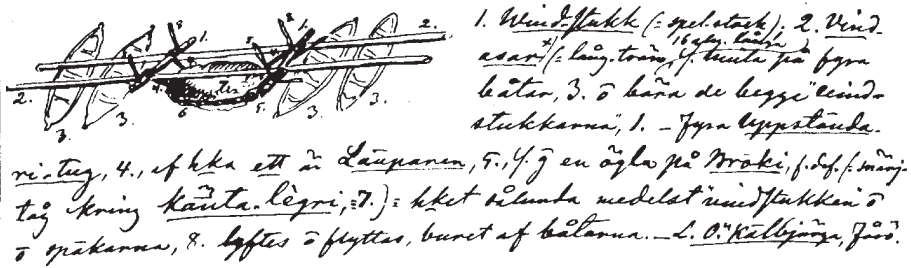 1. Windstukk (= spel.stock). 2. Vind-
asar x) (= lång.träm, 16 alnr. långa) s. sluta på fyra
båtar, 3. o bära de begge "vind-
stukkarna", 1. – Fyra Uppstånda.
ri-tug, 4., af hka ett är Läuparen, 5., s. g en ögla på Bröki, f. def. (= snärj-
tåg kring käuta-lègri, = 7.) = hket sålunda medelst vindstukken o
o spakarna, 8. lyftes o flyttas, buret af båtarna. – L. O. "Kälbjärga, Fårö.
2.
1.
8.
4.
5.
6.
3.
3.
3.
3.
2.